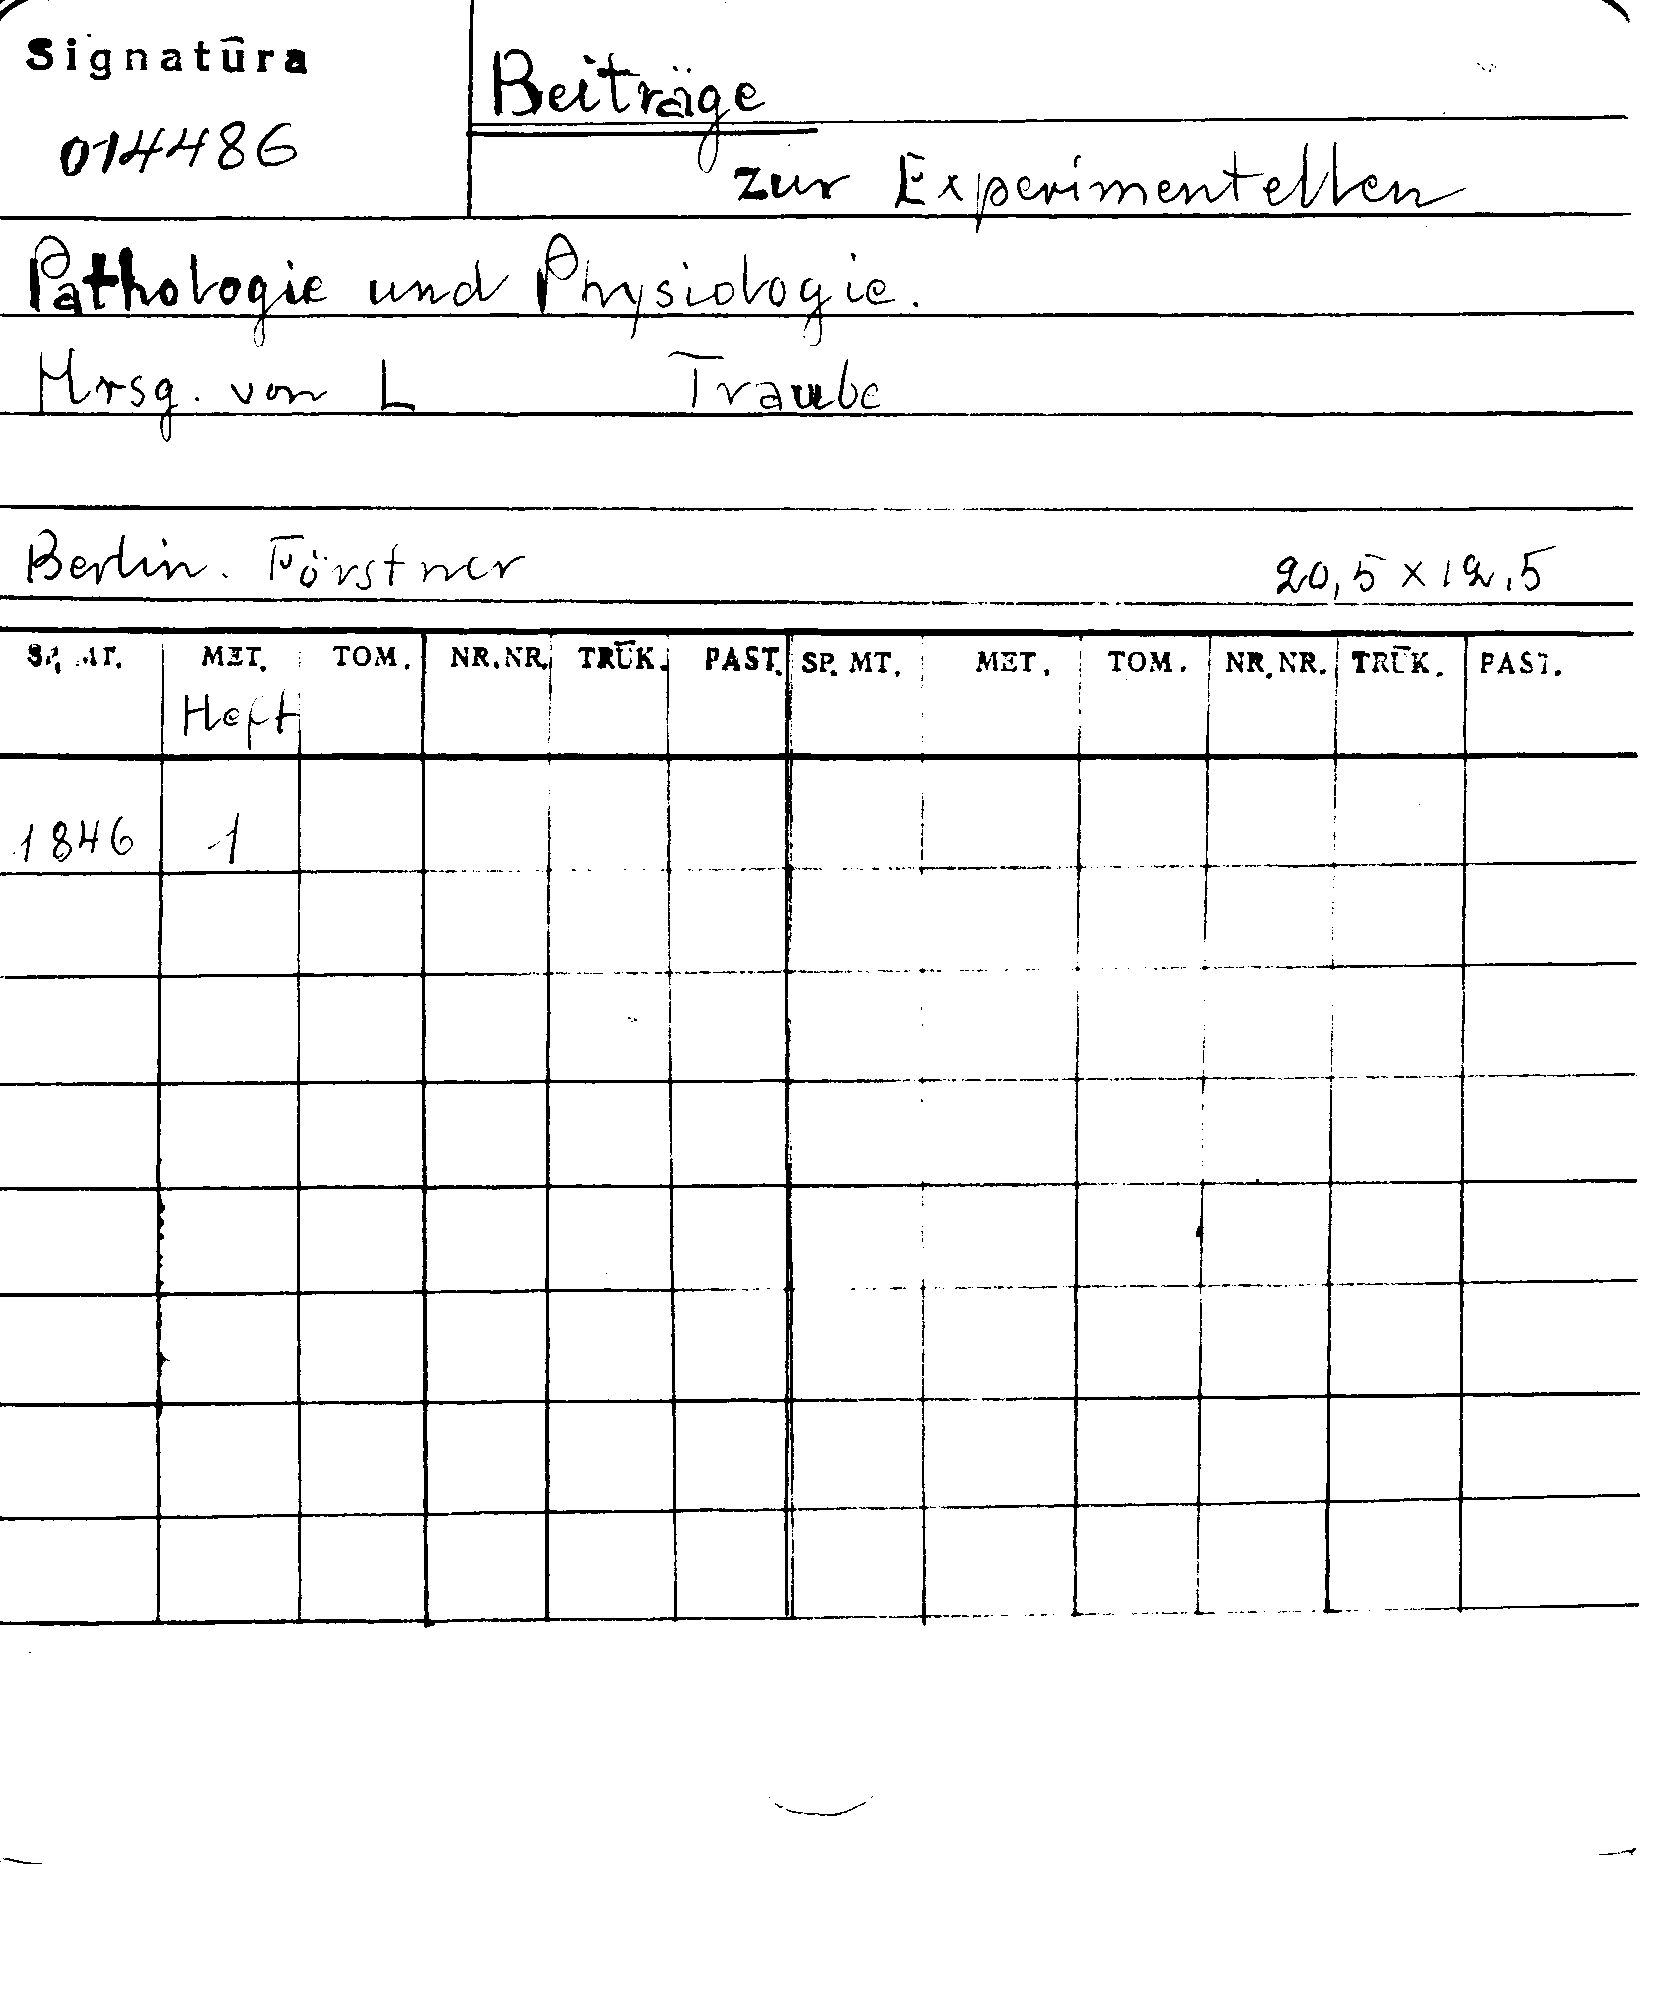 Signatūra
014486
Beiträge
zur Experimentellen
Pathologie und Physiologie.
Hrsg. von L Traube
Berlin. Förstner 20,5 x 12,5
SP. MT. MET. TOM. NR.NR. TRŪK. PAST. SP. MT. MET. TOM. NR.NR. TRŪK. PAST.
Heft
1846 1